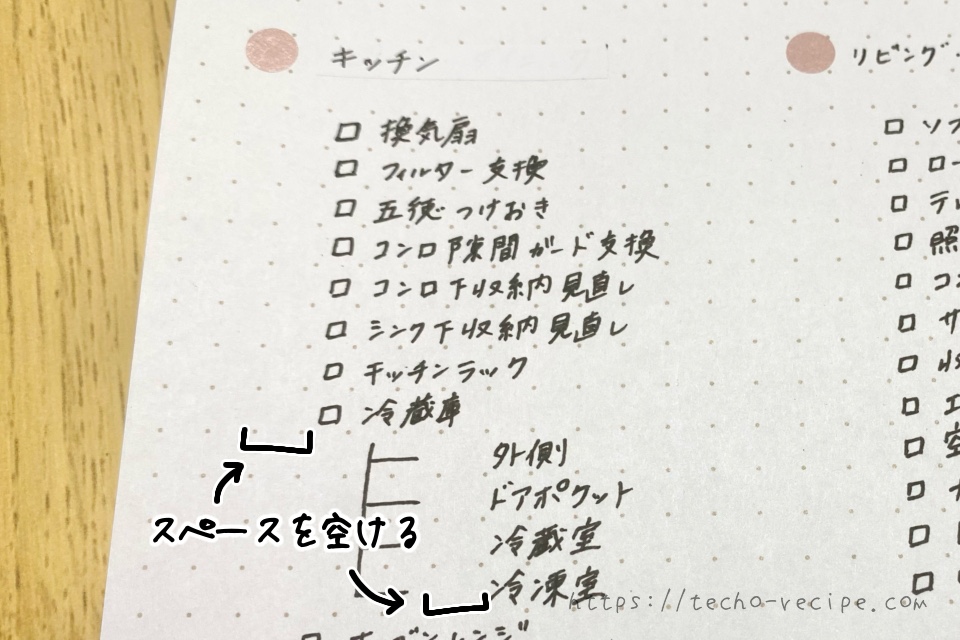 キッチン
換気扇
フィルター交換
五徳つけおき
コンロ隙間ガード交換
コンロ下収納見直し
シンク下収納見直し
キッチンラック
冷蔵庫
外側
ドアポケット
冷蔵室
冷凍室
オーブンレンジ
スペースを空ける
リビング
ソファ
ロー
テレ
照
コン
サ
収
エ
空
https://techo-vecipe.com